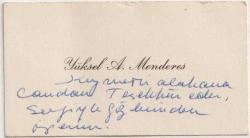 Yüksel A. Menderes
Kıymetli alakana
Candan Teşekkür eder,
Sevgiyle gözlerinden
öperim.